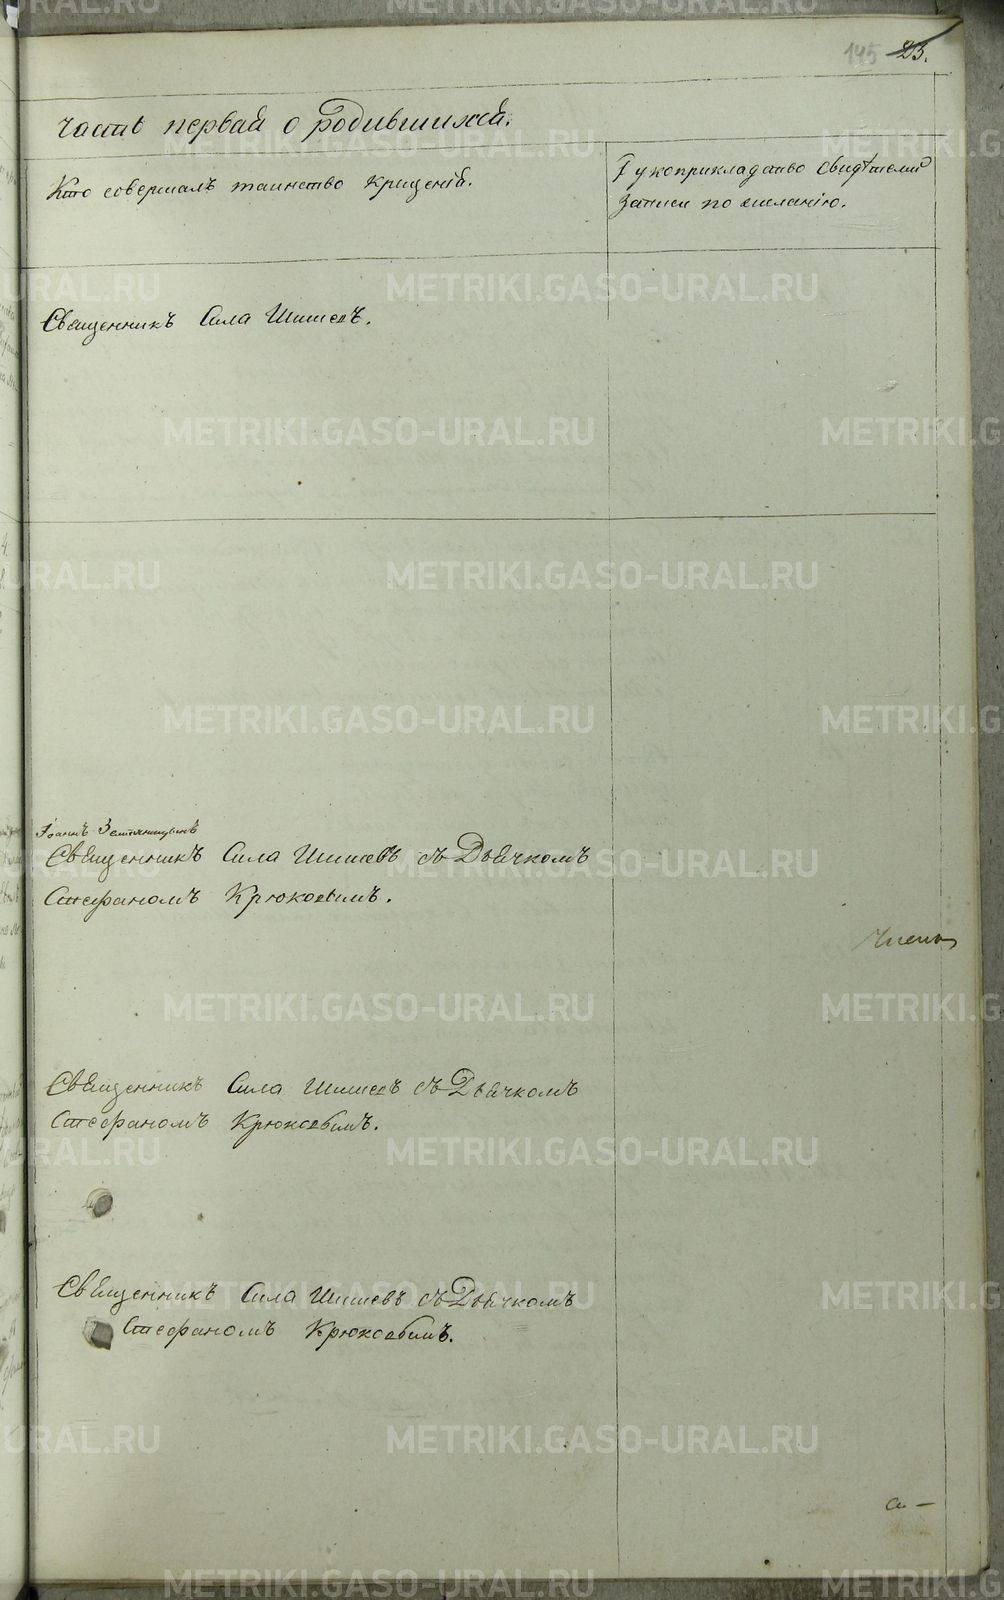 145 23.
Часть первая о родившихся.
Кто совершалъ таинство крещенія.
Рукоприкладство свидѣтелей
записи по желанію.
Священникъ Сила Шишевъ.
Іоаннъ Земляницынъ
Священникъ Сила Шишевъ съ Дьячкомъ
Стефаномъ Крюковымъ.
Священникъ Сила Шишевъ съ Дьячкомъ
Стефаномъ Крюковымъ.
Священникъ Сила Шишевъ съ Дьячкомъ
Стефаномъ Крюковымъ.
METRIKI.GASO-URAL.RU